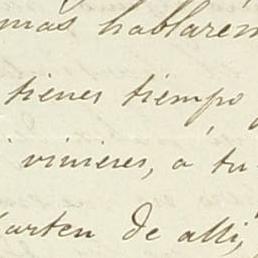 mas hablarem
tienes tiempo
vinieres, a tu
de alli,